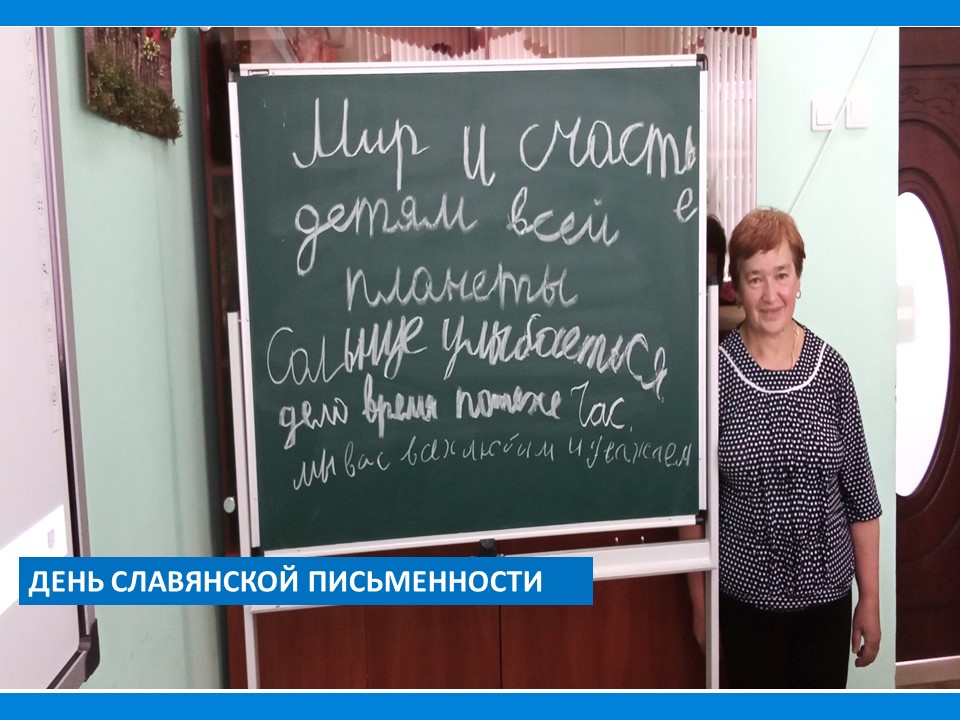 Мир и счасть
е
детям всей
планеты
Солнце улыбаеться
дело время потехе Час.
мы вас всех любим и уважаем
ДЕНЬ СЛАВЯНСКОЙ ПИСЬМЕННОСТИ